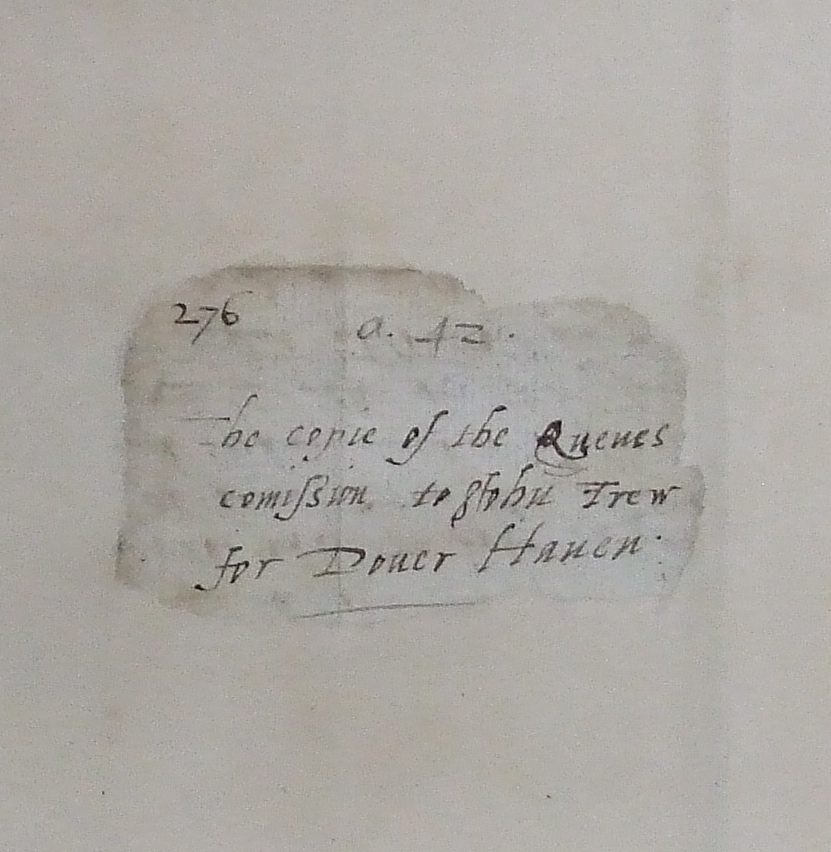 276
a. 42.
The copie of the Queues
comission to John Trew
for Douer Hauen.